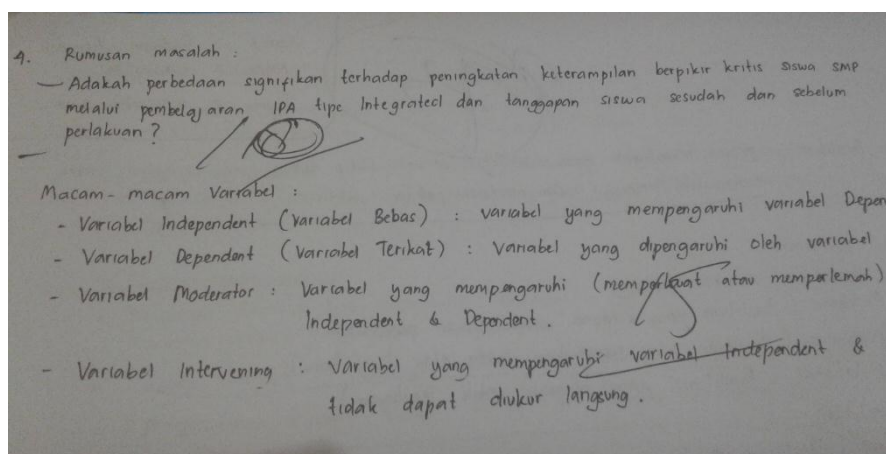 4. Rumusan masalah :
— Adakah perbedaan signifikan terhadap peningkatan keterampilan berpikir kritis siswa SMP
melalui pembelajaran IPA tipe Integrated dan tanggapan siswa sesudah dan sebelum
perlakuan ?
Macam-macam Variabel :
- Variabel Independent (Variabel Bebas) : variabel yang mempengaruhi variabel Depen
- Variabel Dependent (Variabel Terikat) : Variabel yang dipengaruhi oleh variabel
- Variabel Moderator : Variabel yang mempengaruhi (memperkuat atau memperlemah)
Independent & Dependent.
- Variabel Intervening : Variabel yang mempengaruhi variabel Independent &
tidak dapat diukur langsung.